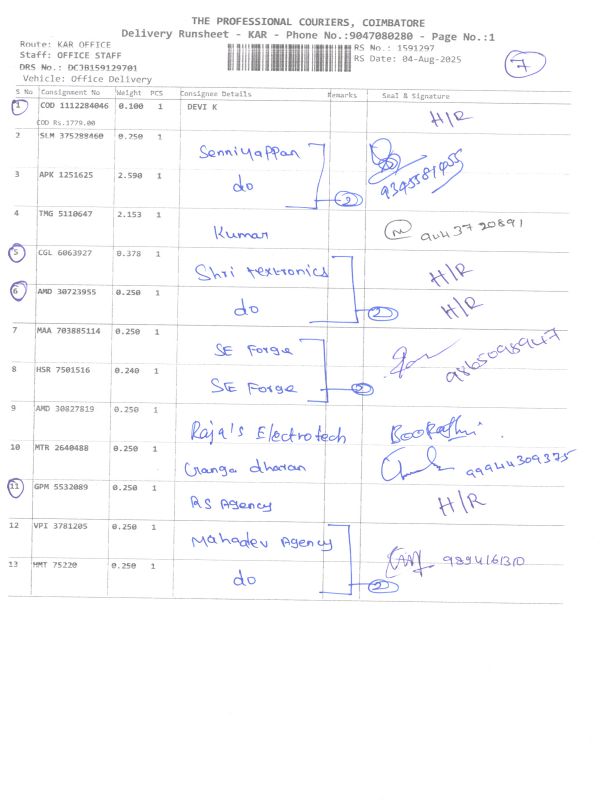 THE PROFESSIONAL COURIERS, COIMBATORE
Delivery Runsheet - KAR - Phone No.:9047080280 - Page No.:1
Route: KAR OFFICE
RS No.: 1591297
Staff: OFFICE STAFF
RS Date: 04-Aug-2025
7
DRS No.: DCJB159129701
Vehicle: Office Delivery
S No Consignment No Weight PCS Consignee Details Remarks Seal & Signature
1 COD 1112284046 0.100 1 DEVI K H/R
COD Rs.1779.00
2 SLM 375288460 0.250 1 Senniyappan
3 APK 1251625 2.590 1 do 2
4 TMG 5110647 2.153 1 Kumar 9443720891
5 CGL 6063927 0.378 1 Shri textronics H/R
6 AMD 30723955 0.250 1 do 2 H/R
7 MAA 703885114 0.250 1 SE Forge 9865098947
8 HSR 7501516 0.240 1 SE Forge 2
9 AMD 30827819 0.250 1 Raja's Electrotech
10 MTR 2640488 0.250 1 Ganga dharan 99944309375
11 GPM 5532089 0.250 1 RS Agency H/R
12 VPI 3781205 0.250 1 Mahadev Agency
13 HMT 75220 0.250 1 do 2